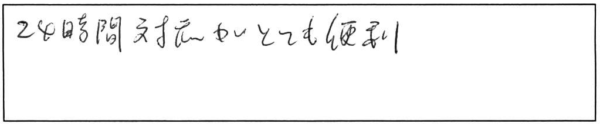 24時間対応がとても便利